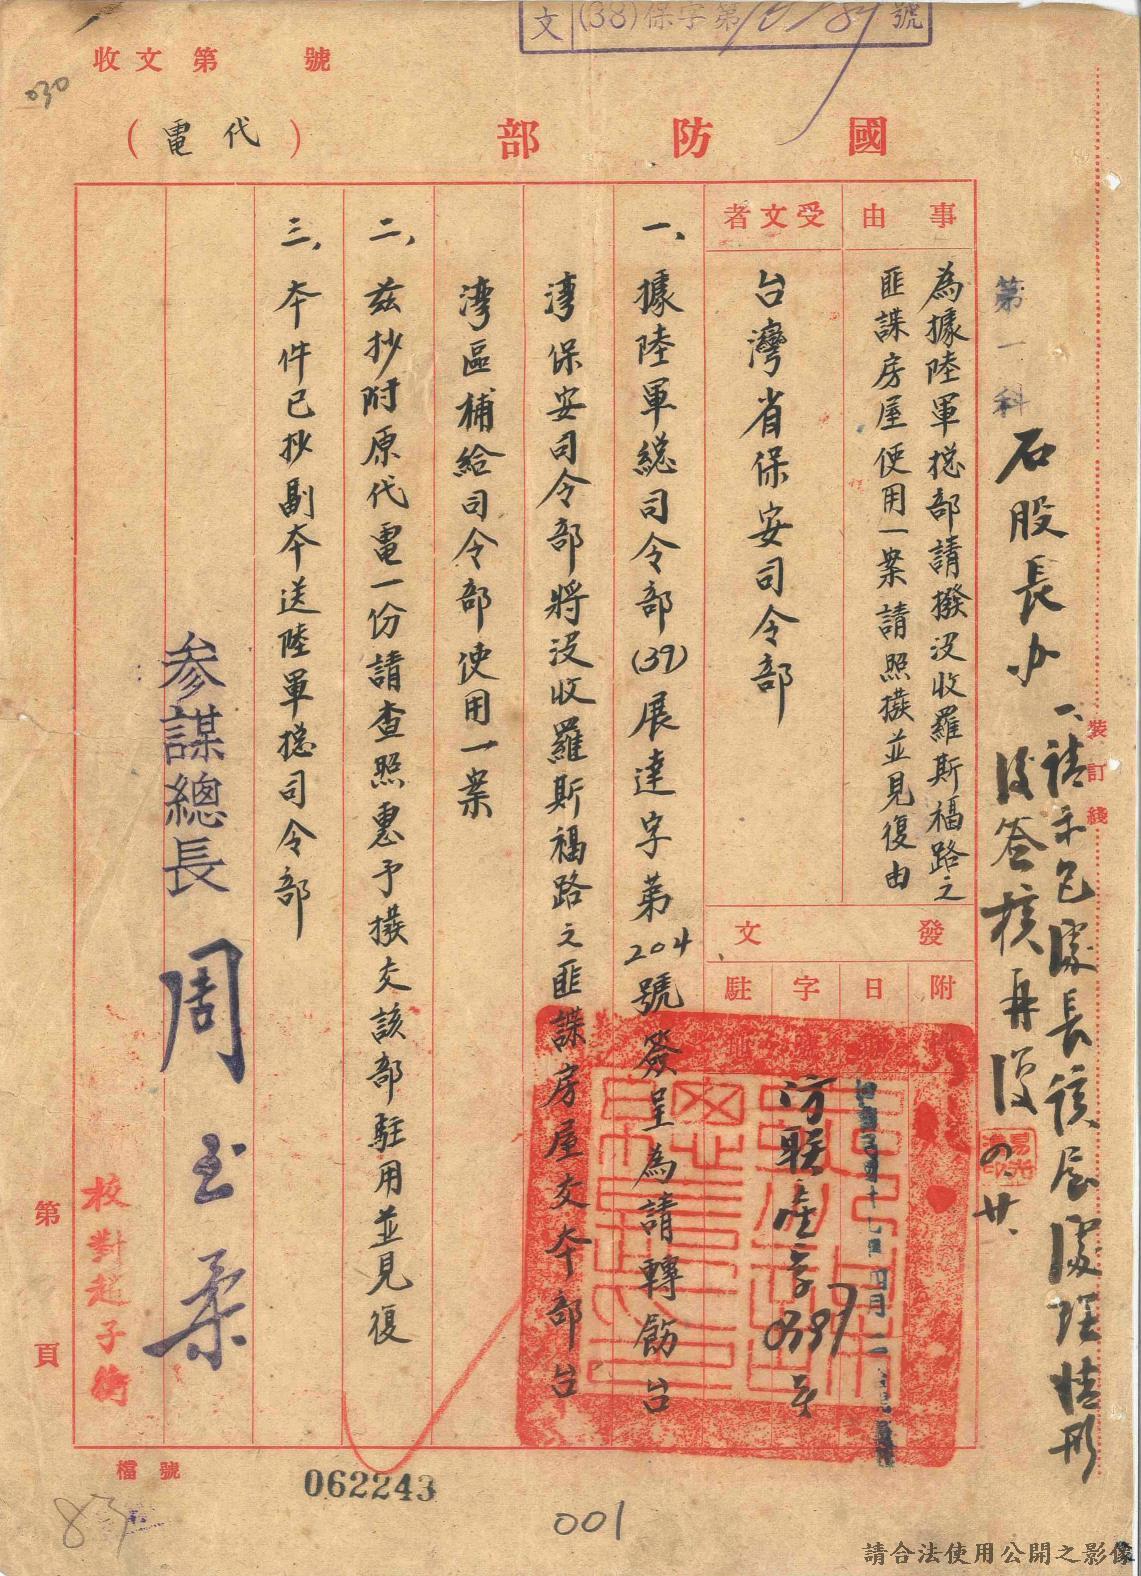 文 (38)保字第 號
收文 第 號
030
國防部
(代電)
事由
為據陸軍總部請撥沒收羅斯福路之
匪諜房屋使用一案請照撥並見復由
受文者
台灣省保安司令部
發文
附
日
字
駐
中華民國三十九年四月
防联
一、據陸軍總司令部(39)展達字第204號簽呈為請轉飭台
灣保安司令部將沒收羅斯福路之匪諜房屋交本部台
灣區補給司令部使用一案
二、茲抄附原代電一份請查照惠予撥交該部駐用並見復
三、本件已抄副本送陸軍總司令部
參謀總長 周至柔
校對趙子衡
第 頁
第一科
石股長办
一、請示包處長該屋處理情形
後簽核再復
四、廿、
裝訂綫
檔號
062243
001
83
請合法使用公開之影像